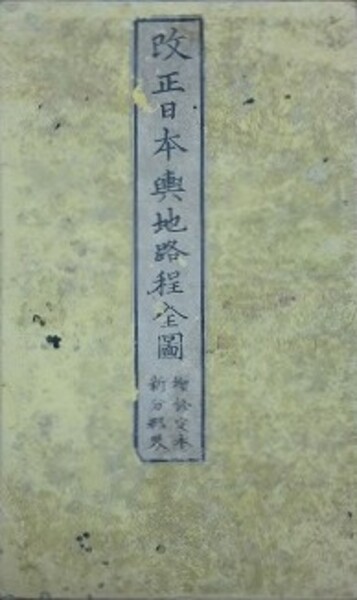 改正日本輿地路程全圖
增修定本
新分郡界